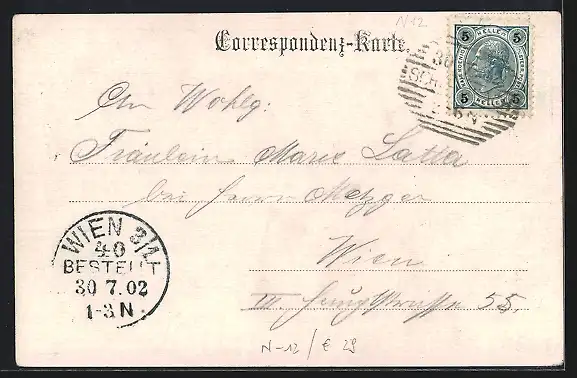 N12
Correspondenz-Karte.
5 HELLER 5
5 HELLER 5
30
An Wohlg:
Fräulein Marie Latta
bei Herrn Metzger
Wien
III. 55.
WIEN 3/1
40
BESTELLT
30 7.02
1-3N.
N-12/€ 29